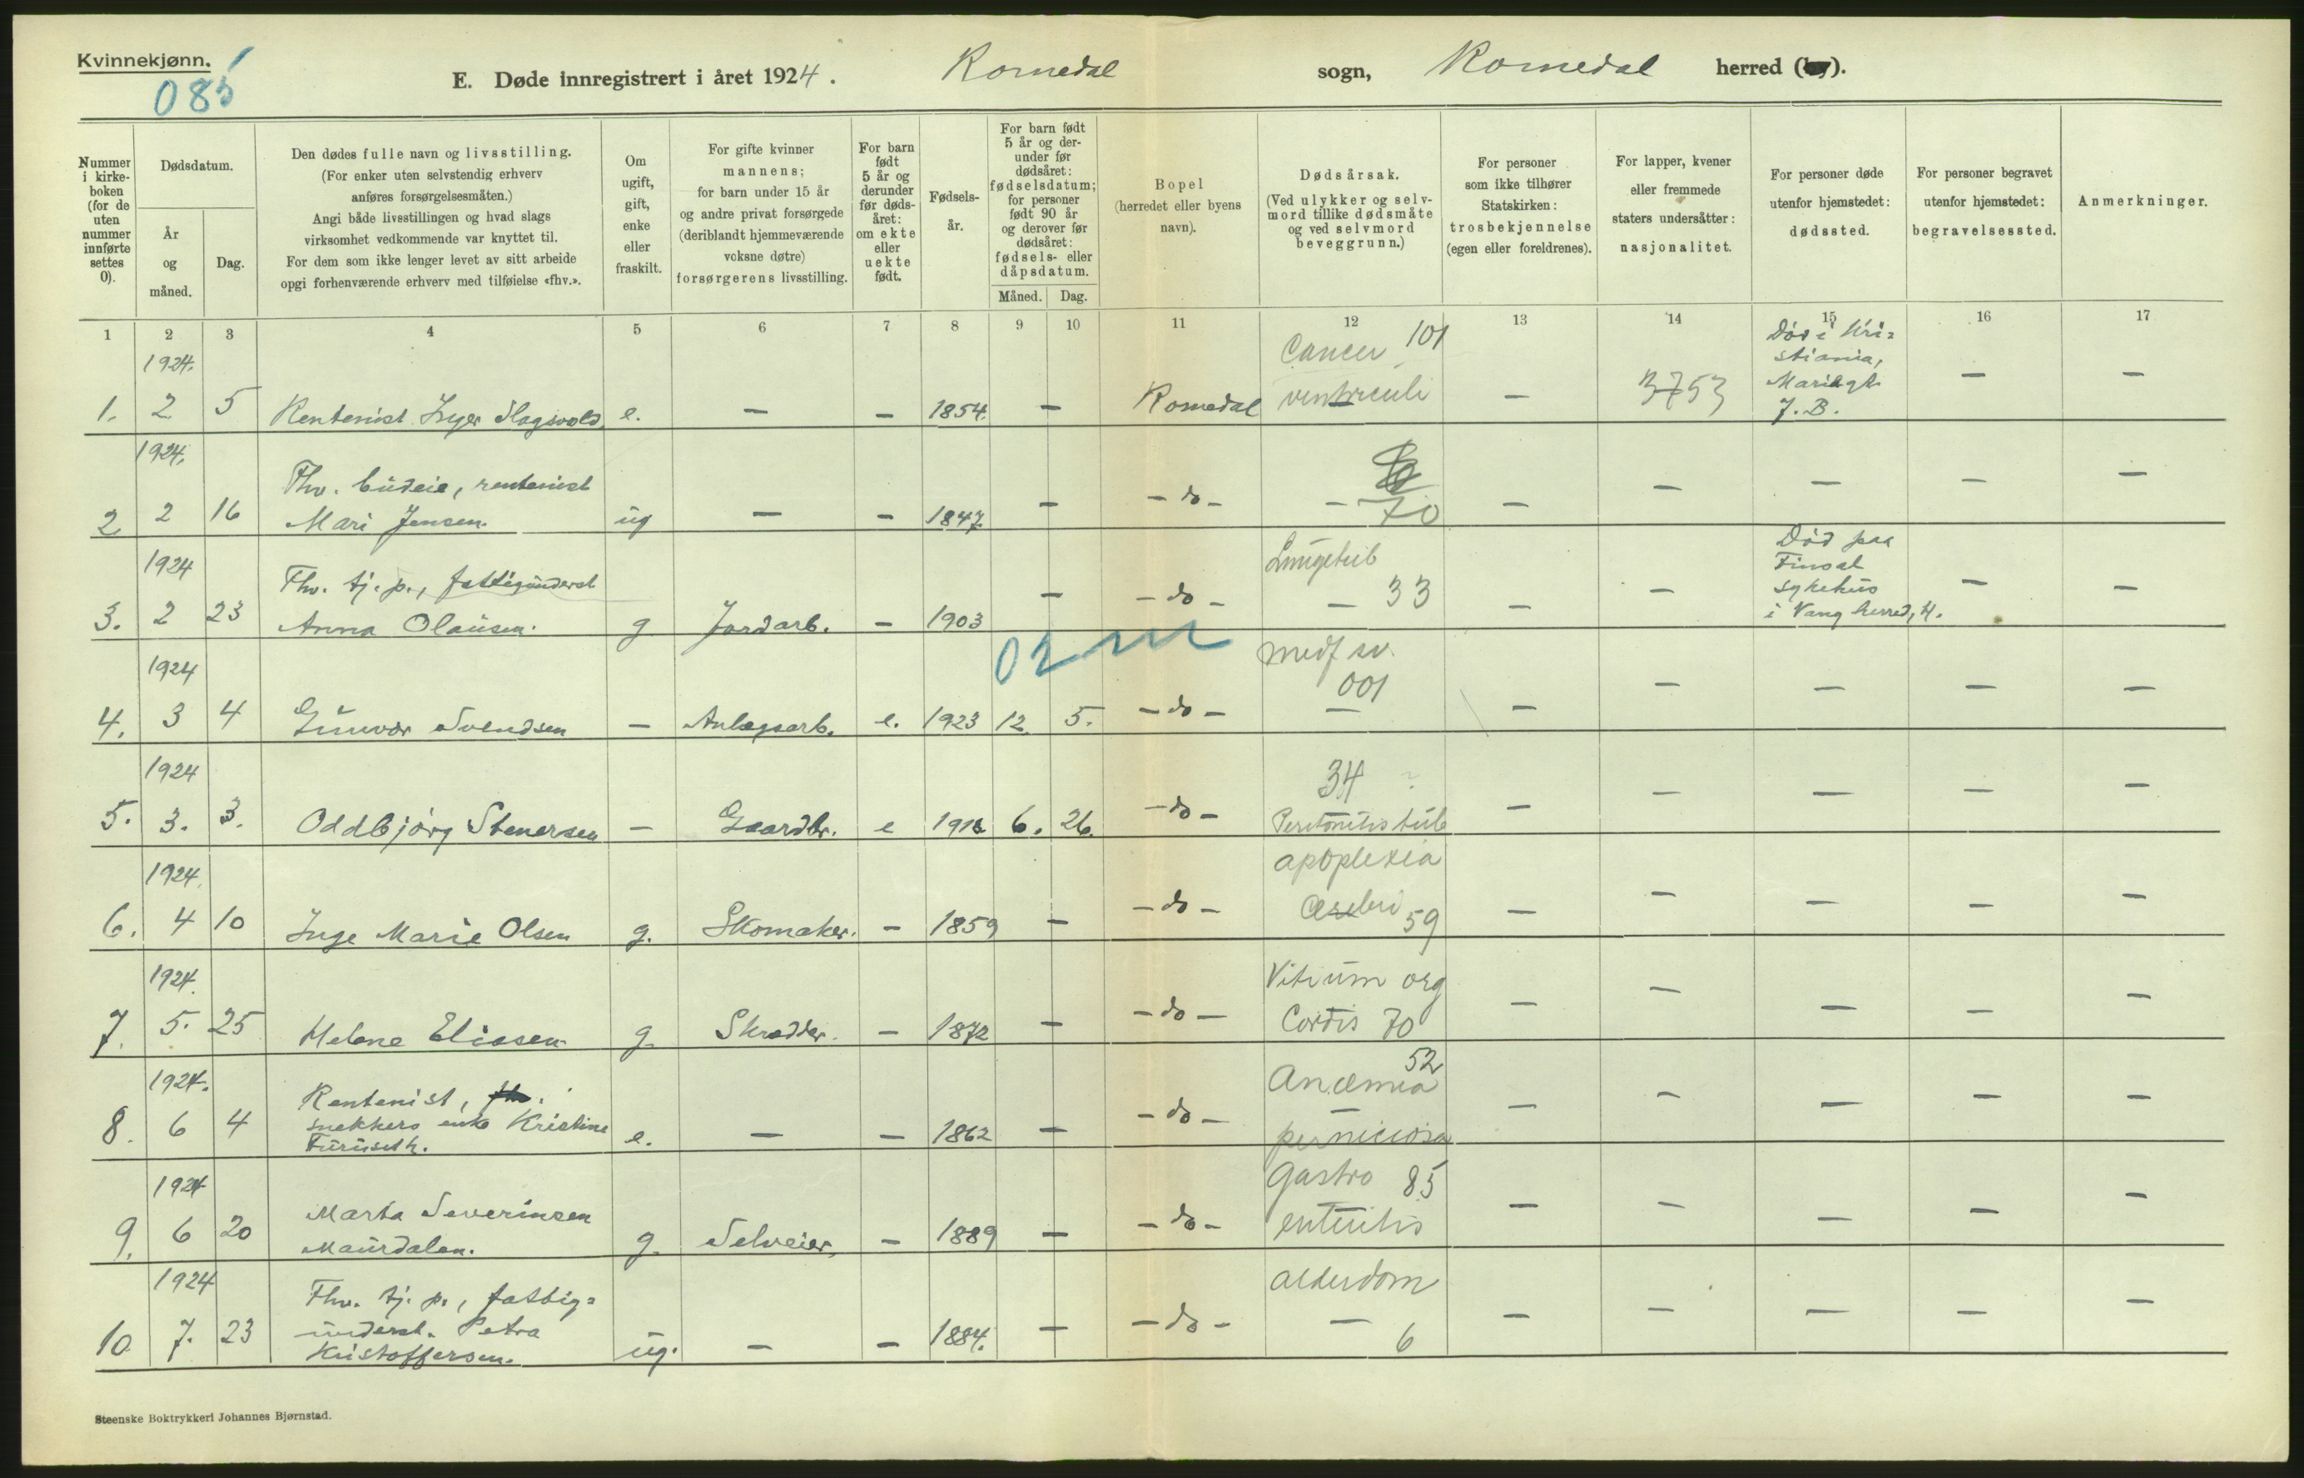 Kvinnekjønn.
085
E. Døde innregistrert i året 1924. Romedal sogn, Romedal herred ( ).
Nummer i kirkeboken (for de uten nummer innførte settes 0).
Dødsdatum.
År og måned.
Dag.
Den dødes fulle navn og livsstilling.
(For enker uten selvstendig erhverv
anføres forsørgelsesmåten.)
Angi både livsstillingen og hvad slags
virksomhet vedkommende var knyttet til.
For dem som ikke lenger levet av sitt arbeide
opgi forhenværende erhverv med tilføielse «fhv.».
Om ugift, gift, enke eller fraskilt.
For gifte kvinner
mannens;
for barn under 15 år
og andre privat forsørgede
(deriblandt hjemmeværende
voksne døtre)
forsørgerens livsstilling.
For barn født 5 år og derunder før dødsåret: om ekte eller uekte født.
Fødselsår.
For barn født 5 år og derunder før dødsåret: fødselsdatum; for personer født 90 år og derover før dødsåret: fødsels- eller dåpsdatum.
Måned. Dag.
Bopel
(herredet eller byens
navn).
Dødsårsak.
(Ved ulykker og selvmord tillike dødsmåte og ved selvmord beveggrunn.)
For personer
som ikke tilhører
Statskirken:
trosbekjennelse
(egen eller foreldrenes).
For lapper, kvener
eller fremmede
staters undersåtter:
nasjonalitet.
For personer døde
utenfor hjemstedet:
dødssted.
For personer begravet
utenfor hjemstedet:
begravelsessted.
Anmerkninger.
1 2 3 4 5 6 7 8 9 10 11 12 13 14 15 16 17
1. 1924. 2 5 Rentenist Inger Slagsvold e. — — 1854. — Romedal Cancer ventriculi 101 — 3753 Død i Kristiania, Mariagt. 7. B. — —
2 1924. 2 16 Fhv. budeie, rentenist Mari Jensen. ug — — 1847 — — do — — 70 — — — — —
3. 1924 2 23 Fhv. tj. p., fattigunderst Anna Olausen. g Jordarb. — 1903 — — do — Lungetub — 33 — — Død paa Finsal sykehus i Vang herred, H. — —
02
4. 1924 3 4 Gunvor Svendsen — Anlægsarb. e. 1923 12 5. — do — Medf sv. 001 — — — — — —
5. 1924 3. 3. Oddbjørg Stenersen — Gaardbr. e 1918 6. 26. — do — 34 Peritonitis tub — — — — —
6. 1924. 4 10 Inge Marie Olsen g. Skomaker. — 1859 — — do — apoplexia Cerebri 59 — — — — —
7. 1924. 5. 25 Helene Eliasen g. Skrædder. — 1872 — — do — Vitium org Cordis 70 — — — — —
8. 1924. 6 4 Rentenist, fhv. snekkers enke Kristine Furuseth. e. — — 1862 — — do — Anæmia perniciosa 52 — — — — —
9. 1924 6 20 Marta Severinsen Maurdalen. g. Selveier. — 1889 — — do — Gastro enteritis 85 — — — — —
10 1924 7. 23 Fhv. tj. p., fattigunderst. Petra Kristoffersen. ug. — — 1884. — — do — alderdom — 6 — — — — —
Steenske Boktrykkeri Johannes Bjørnstad.